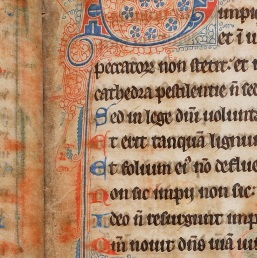 impio
et ī u
peccatoꝝ non stetit· et ī
cathedra pestilentie ñ sed
Sed in lege dñi uolunta
Et erit tanquã lignum
Et folium ei' nõ deflue
Non sic impij non sic·
Ideo ñ resurgunt imp
Qm̃ nouit dñs uiã iu